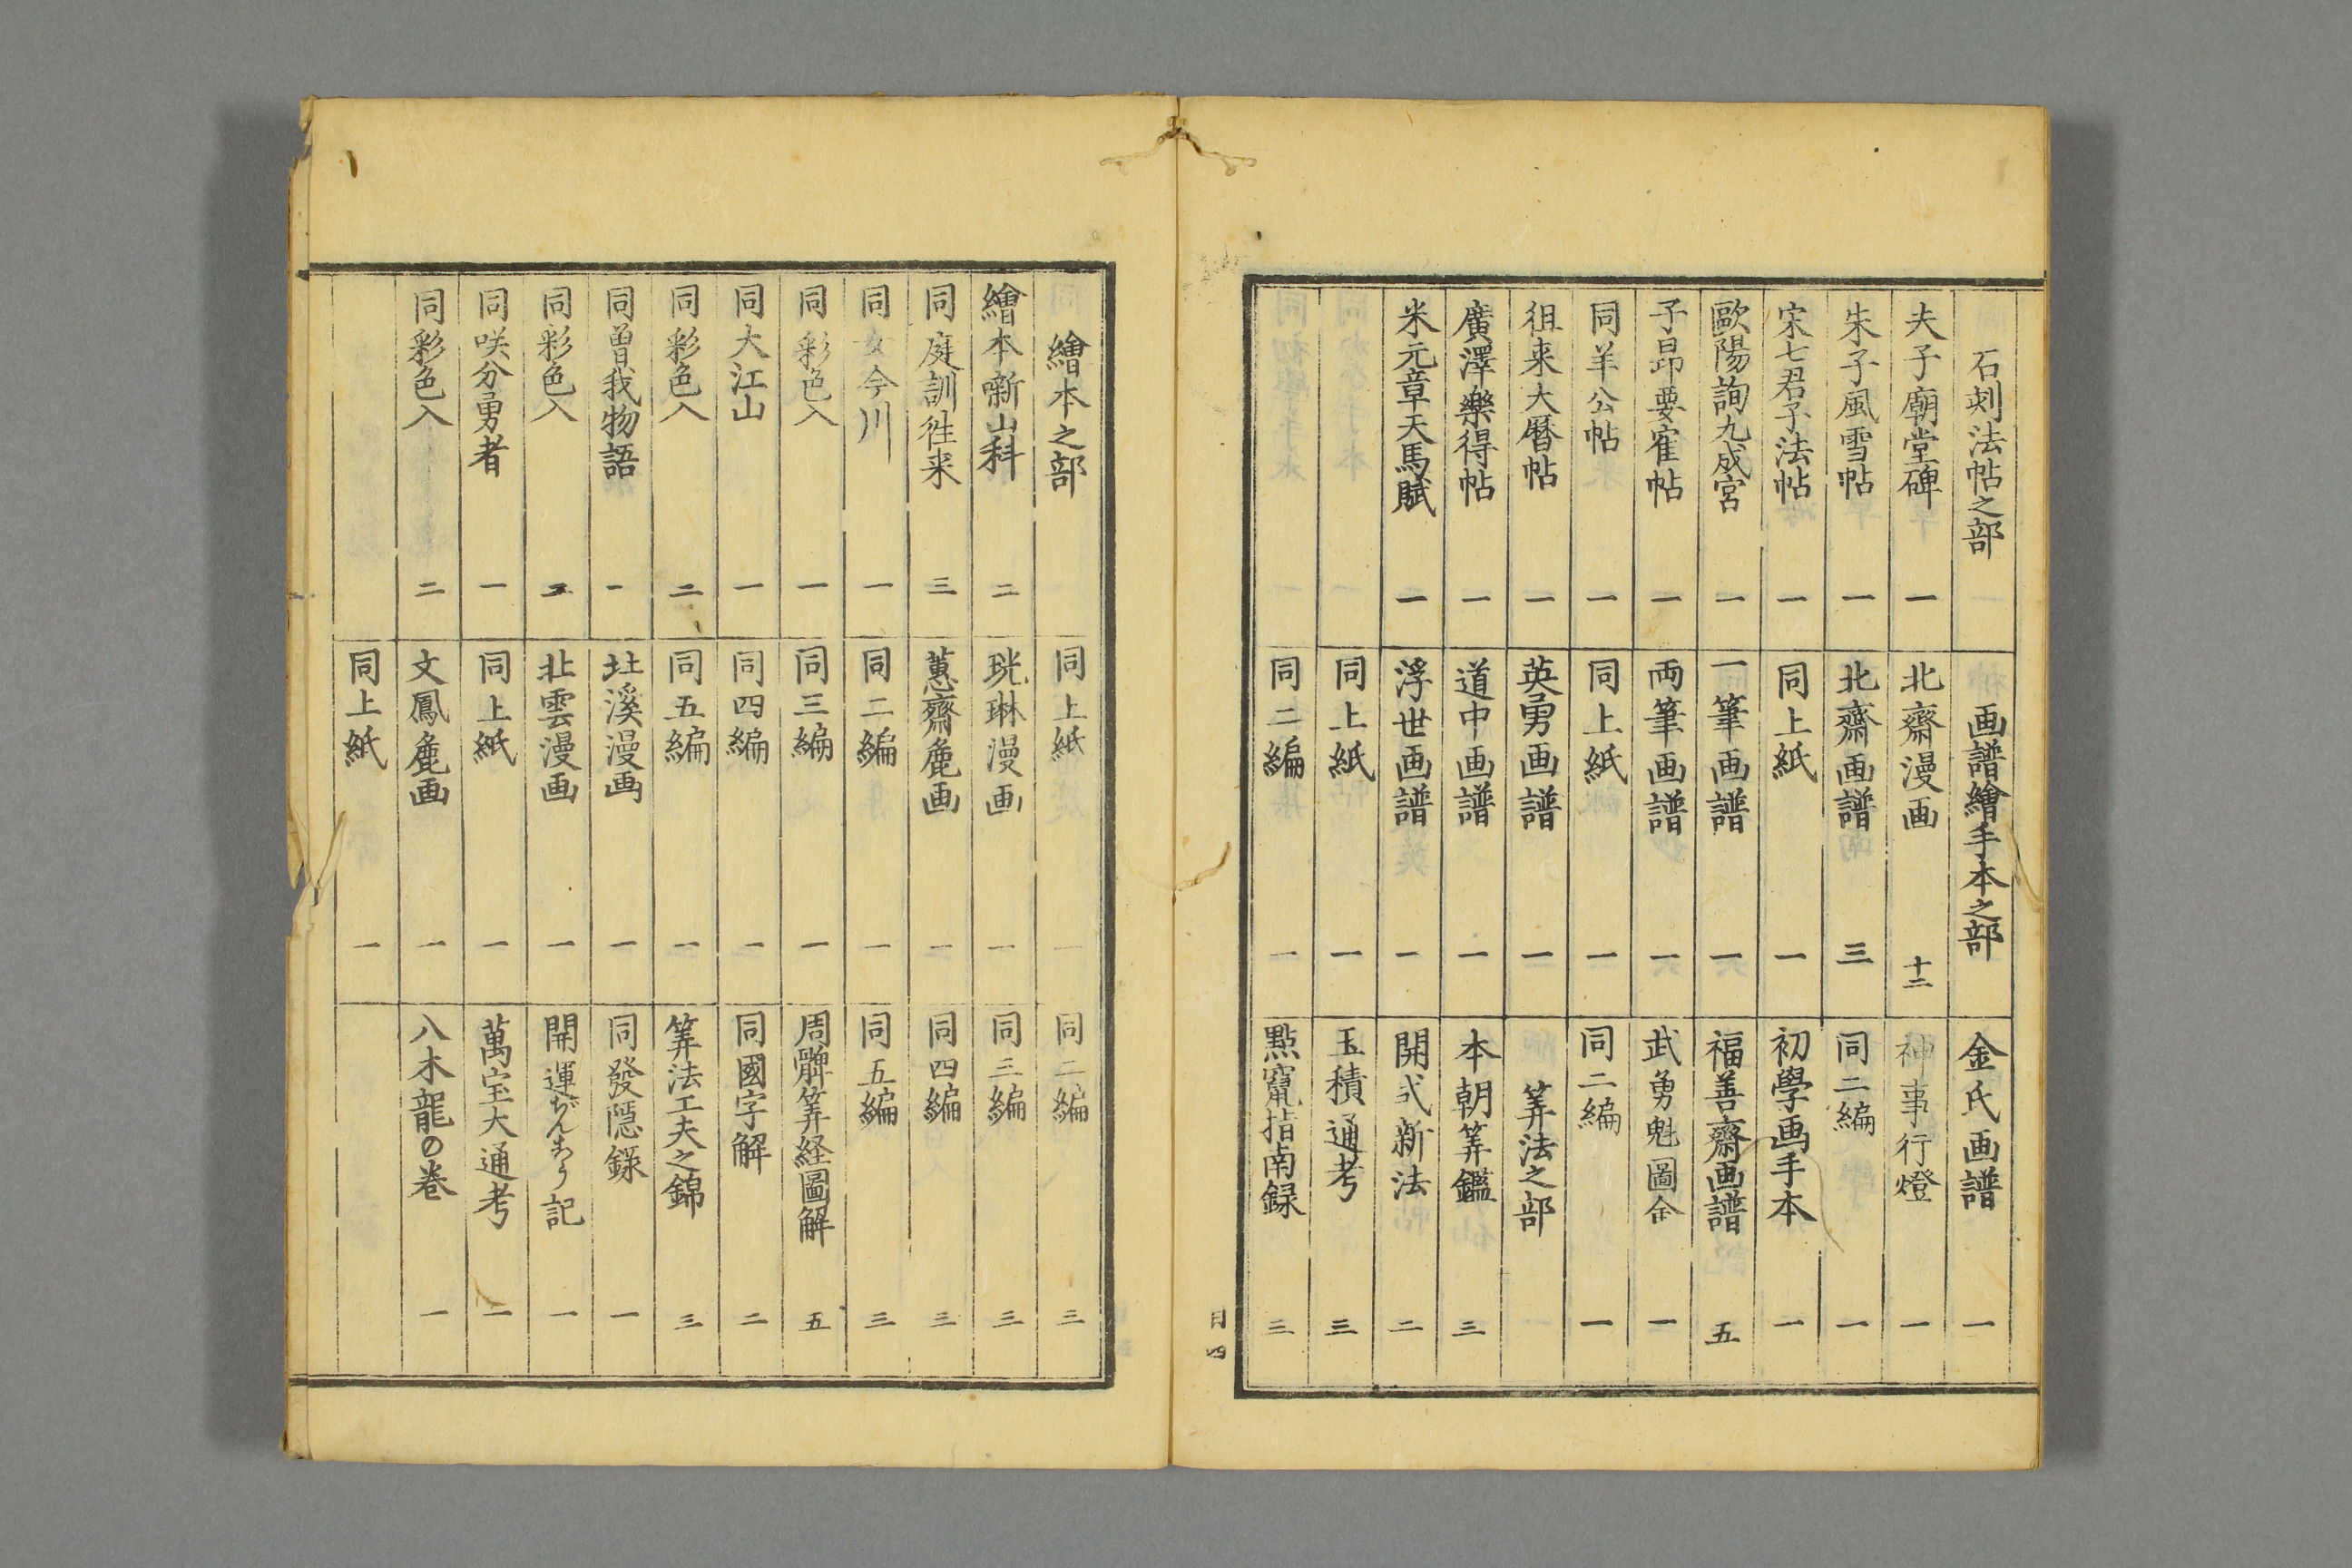 石刻法帖之部
夫子廟堂碑 一
朱子風雪帖 一
宋七君子法帖 一
歐陽詢九成宮 一
子昴要隺帖 一
同羊公帖 一
徂来大暦帖 一
廣澤樂得帖 一
米元章天馬賦 一
画譜繪手本之部
北齋漫画 十二
北齋画譜 三
同上紙 一
一筆画譜 一
両筆画譜 一
同上紙 一
英勇画譜 一
道中画譜 一
浮世画譜 一
同上紙 一
同二編 一
金氏画譜 一
神事行燈 一
同二編 一
初學画手本 一
福善齋画譜 五
武勇魁圖會 一
同二編 一
筭法之部
本朝筭鑑 三
開式新法 二
玉積通考 三
點竄指南録 三
目四
繪本之部
繪本噺山科 二
同庭訓徃来 三
同女今川 一
同彩色入 一
同大江山 一
同彩色入 二
同曽我物語 一
同彩色入 二
同咲分勇者 一
同彩色入 二
同上紙 一
珖琳漫画 一
蕙齋麁画 一
同二編 一
同三編 一
同四編 一
同五編 一
北溪漫画 一
北雲漫画 一
同上紙 一
文鳳麁画 一
同上紙 一
同二編 三
同三編 三
同四編 三
同五編 三
周髀筭経圖解 五
同國字解 二
筭法工夫之錦 三
同發隱錄 一
開運ぢんこう記 一
萬宝大通考 一
八木龍の巻 一